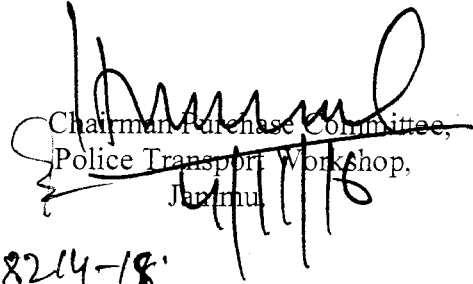 Chairman Purchase Committee,
Police Transport Workshop,
Jammu.
8214-18